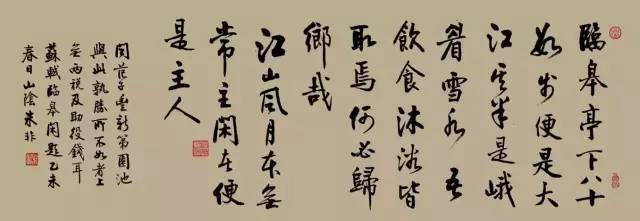 臨皋亭下八十
數步便是大
江其半是峨
眉雪水吾
飲食沐浴皆
取焉何必歸
鄉哉
江山風月本無
常主閑者便
是主人
聞范子豐新第園池
與此孰勝所不如者上
無兩稅及助役錢耳
蘇軾臨皋閑題乙未
春日山陰朱非